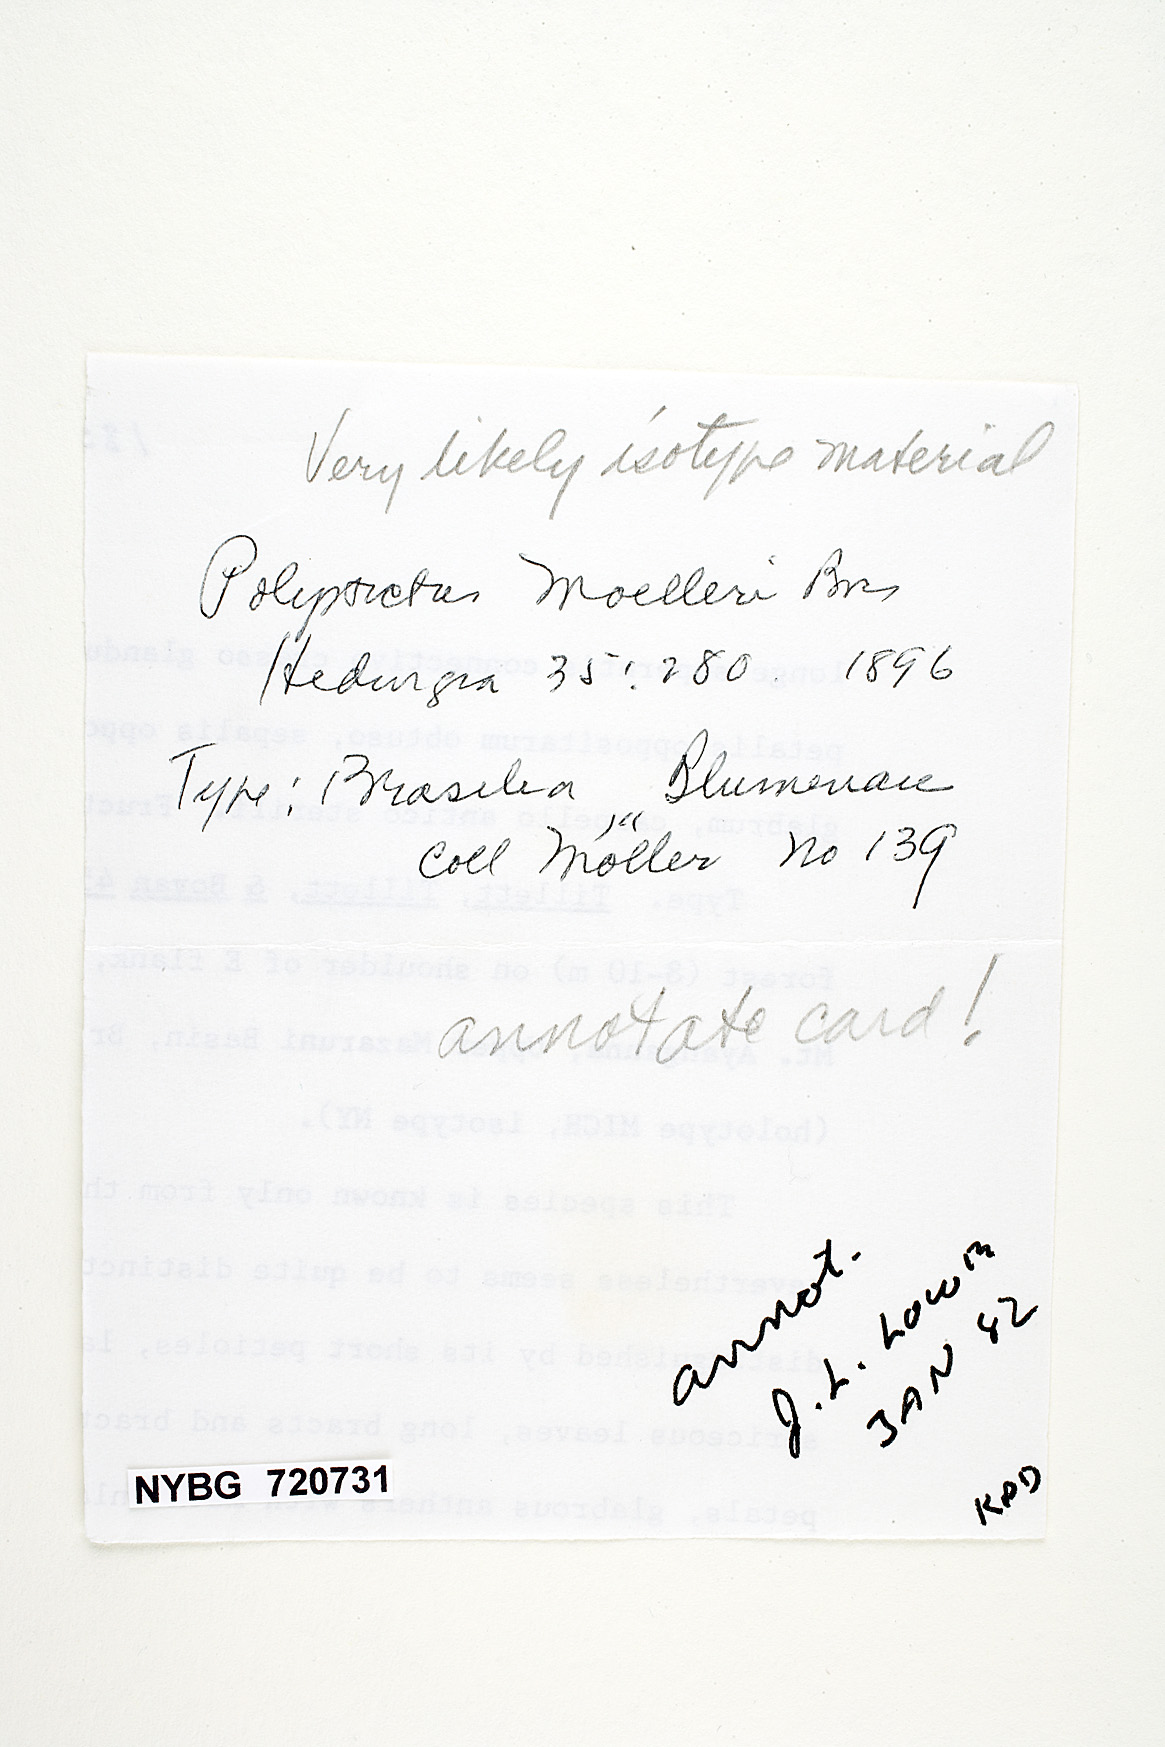 Very likely isotype material
Polystictus Moelleri Bres
Hedwigia 35: 280. 1896
Type: Brasilia, Blumenau
Coll Möller No 139
annotate card!
annot.
J. L. Lowe
JAN 42
KPD
NYBG 720731